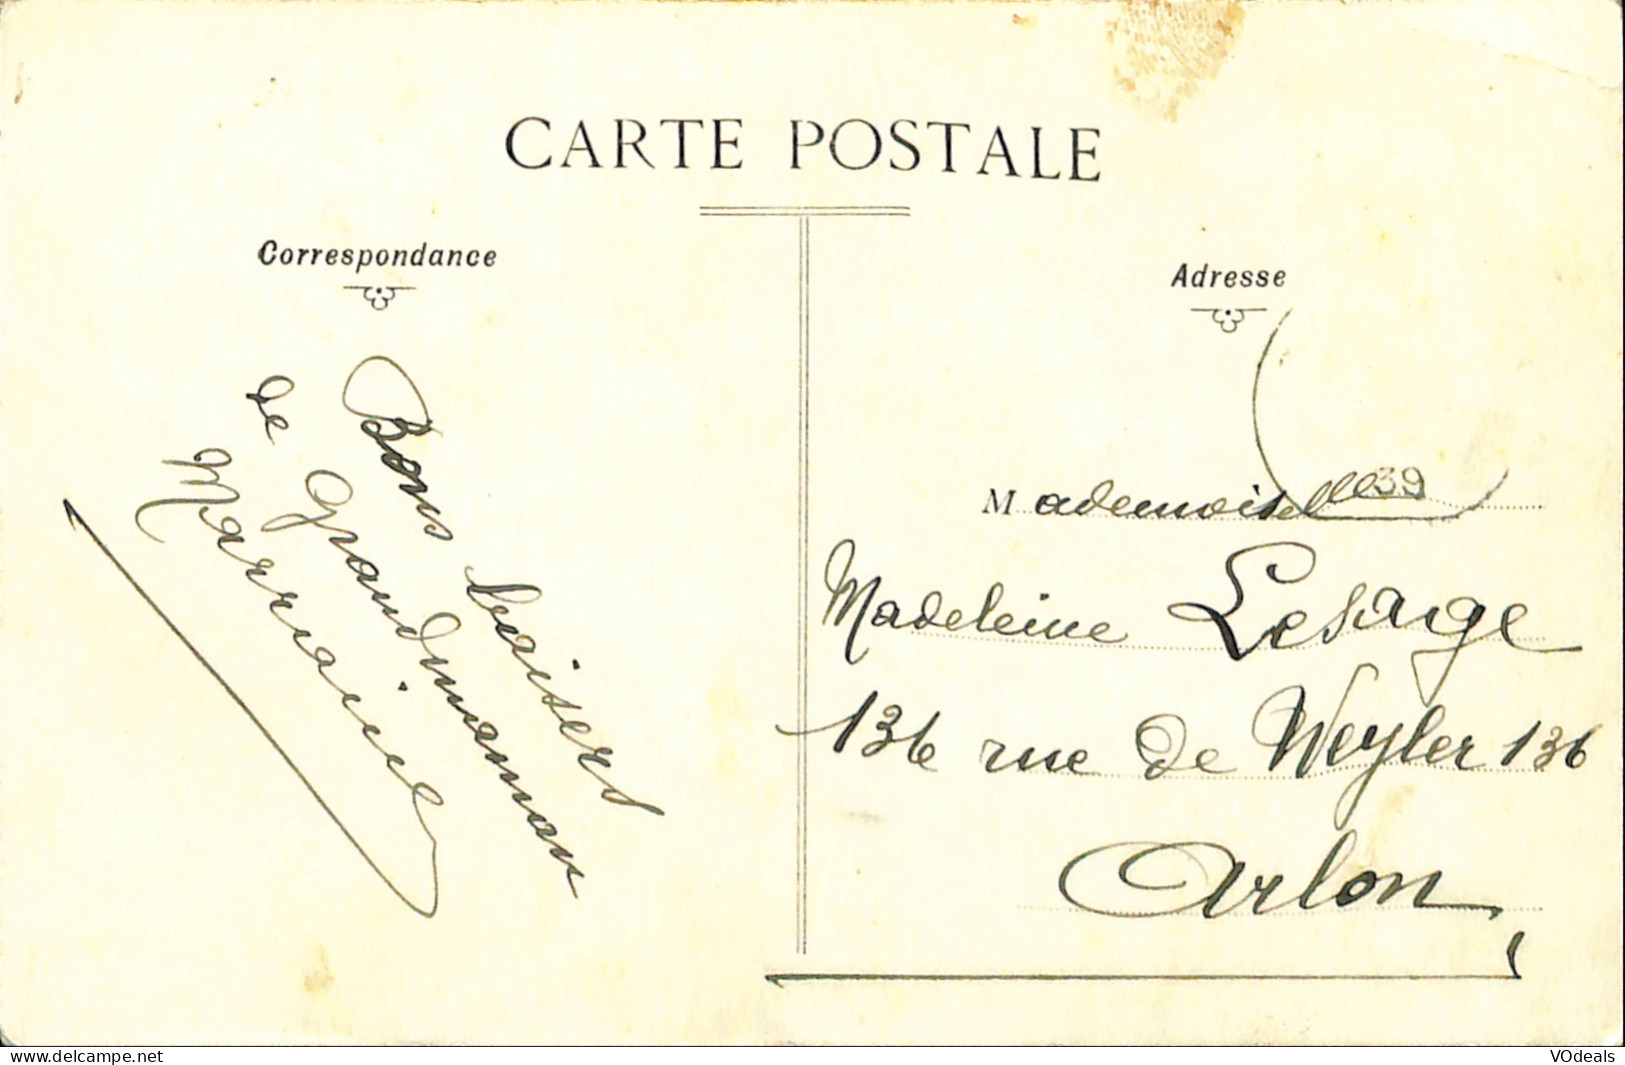 CARTE POSTALE
Correspondance
Bons baisers
de Grandmaman
Marraine
Adresse
39
Mademoiselle
Madeleine Lesage
136 rue de Weyler 136
Arlon
www.delcampe.net
VOdeals